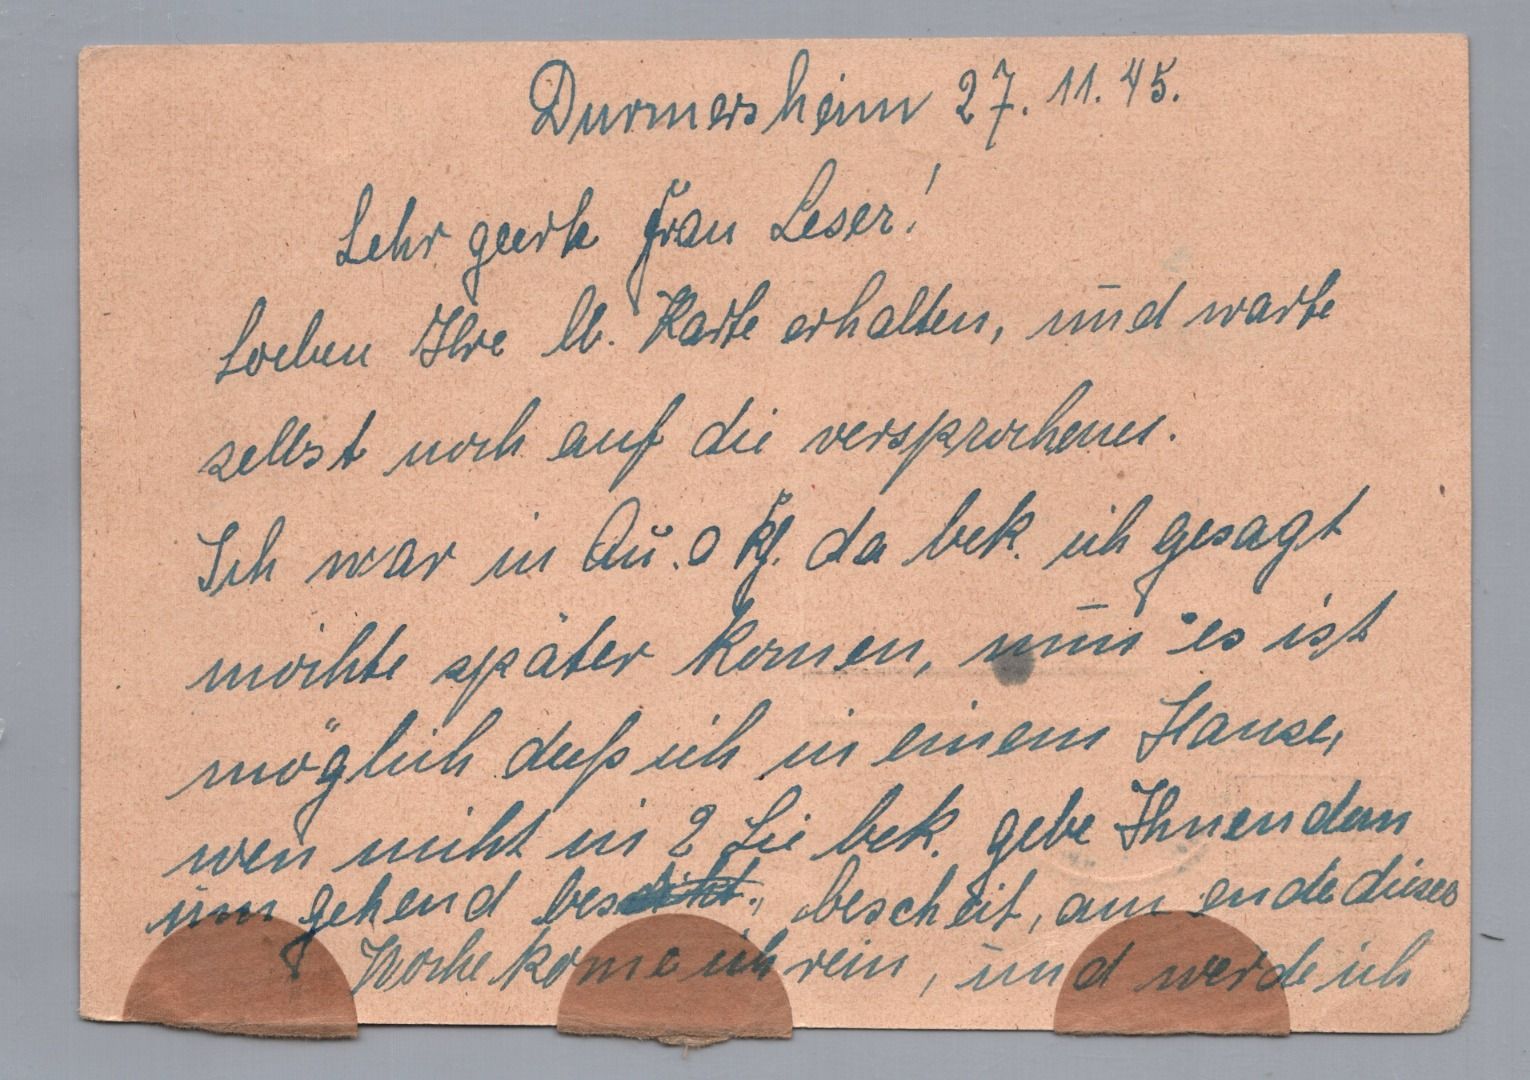 Durmersheim 27. 11. 45.
Sehr geerte Frau Leser!
Soeben Ihre lb. Karte erhalten, und warte
selbst noch auf die versprochenen.
Ich war in da bek. ich gesagt
möchte später komen, nun es ist
möglich daß ich in einem Hause,
wen nicht in 2 Sie bek. gebe Ihnen dan
um gehend bescheit, am ende dieser
Woche kome ich rein, und werde ich